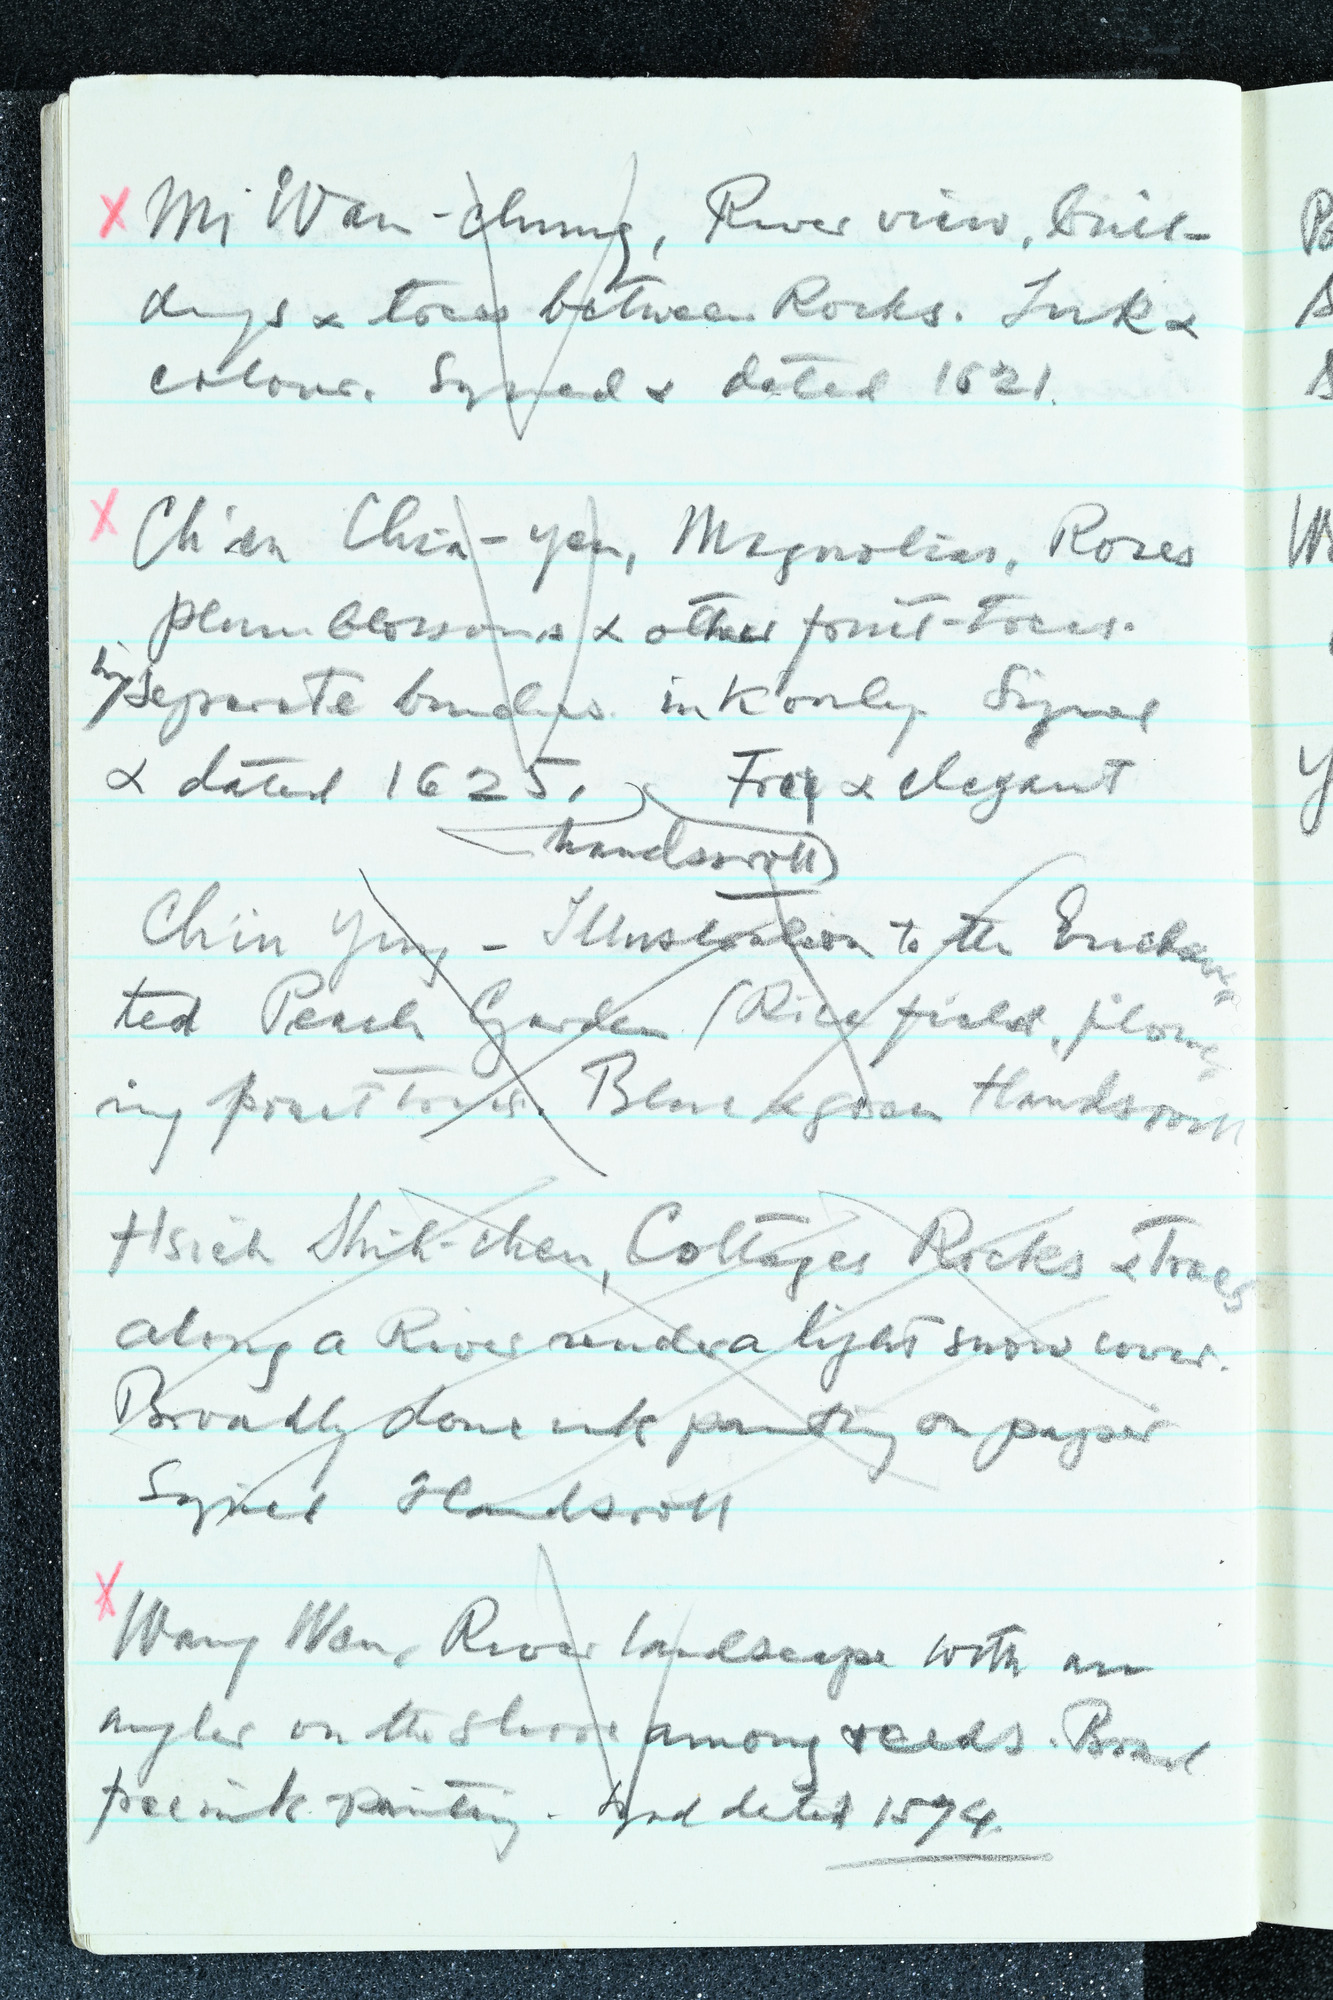 x Mi Wan-chung, River view, buil-
dings & trees between Rocks. Ink &
colour. Signed & dated 1621.
x Ch'en Chia-yen, Magnolias, Roses
plum blossoms & other fruit-trees.
in separate bunches. ink only. Signed
& dated 1625. Free & elegant
handscroll)
Ch'iu Ying - Illustration to the Enchan
ted Peach Garden (Rice field,
ing fruit trees. Blue & green Handscroll
Hsieh Shih-chen, Cottages Rocks & Trees
along a River under a light snow cover.
Broadly done ink painting on paper
Signed Handscroll
x Wang Wen, River landscape with an
angler on the shore among reeds. Broad
free ink-painting. Sgnd dated 1574.